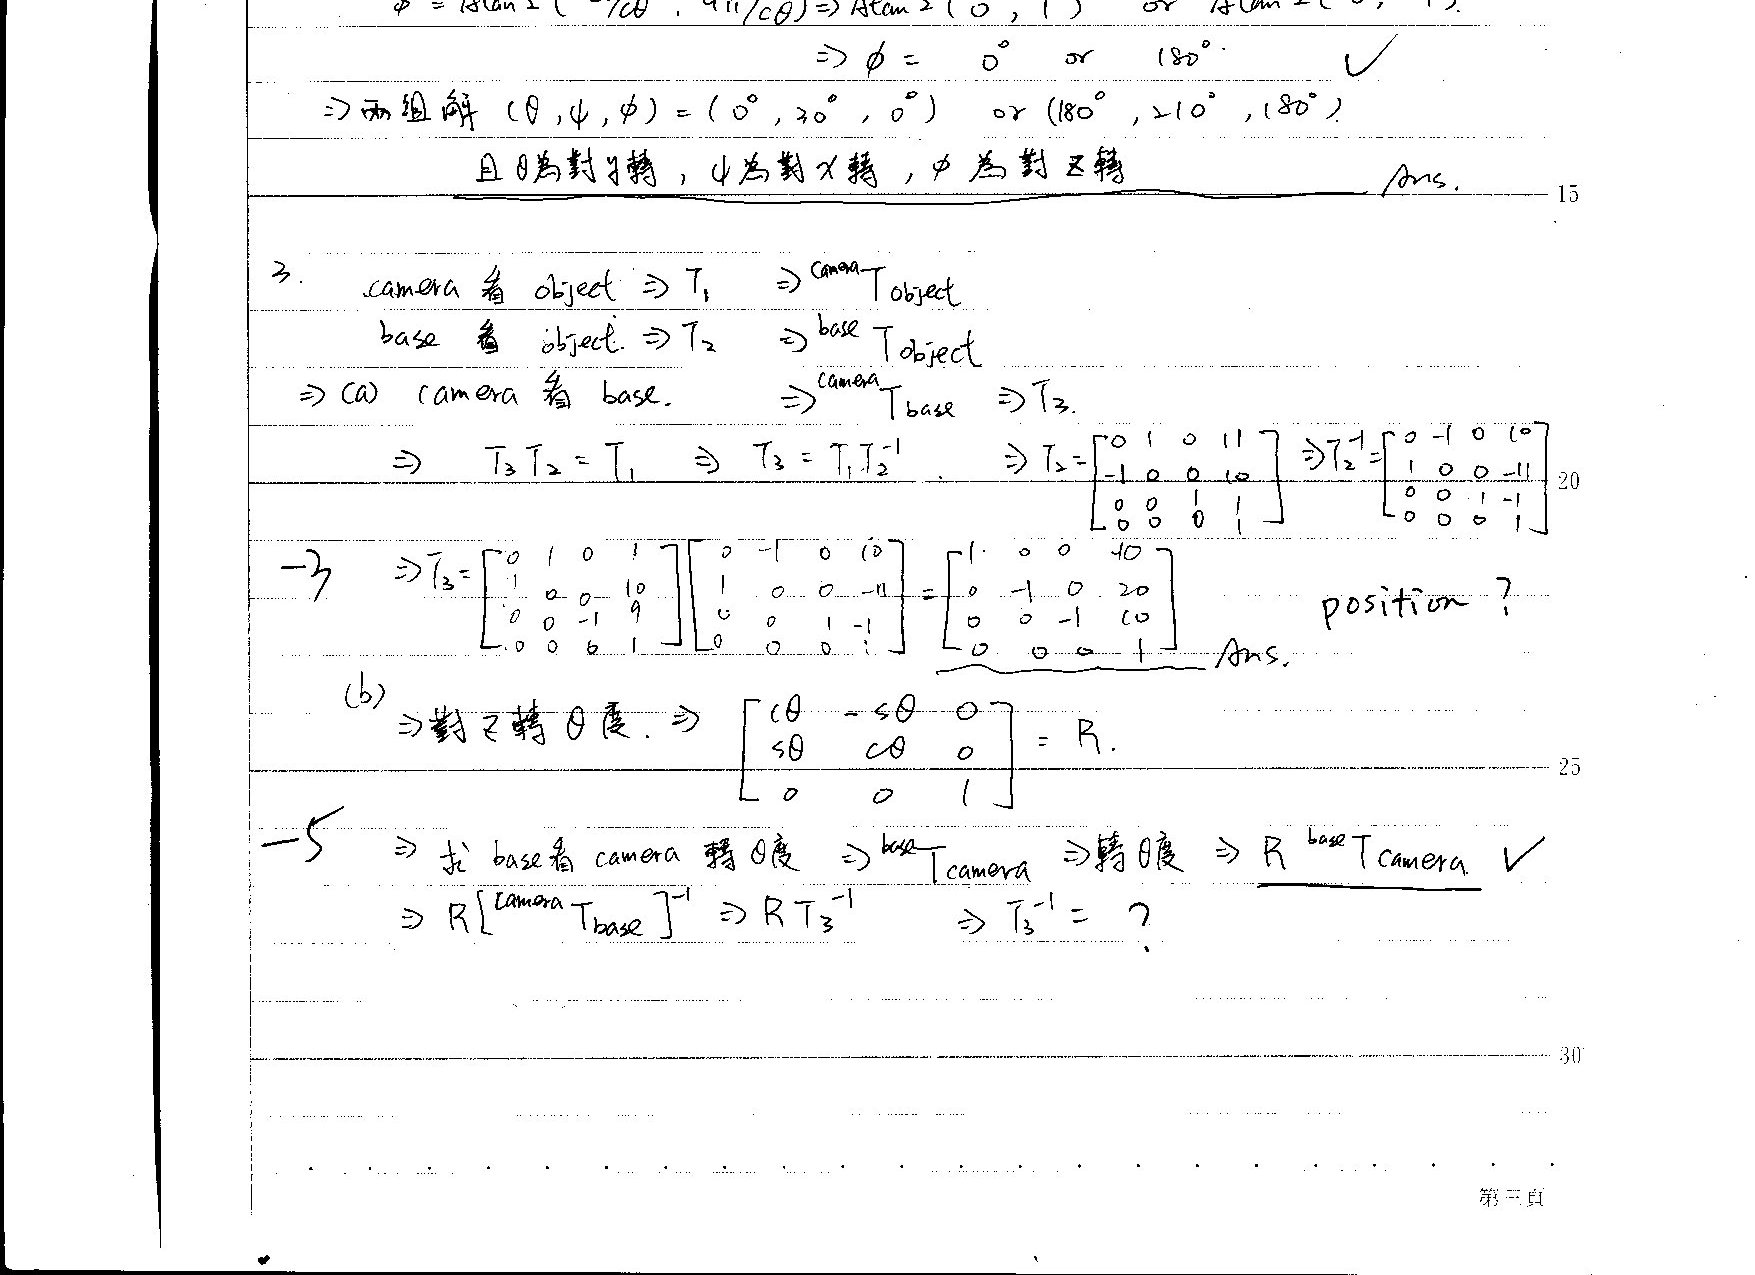 φ = Atan2( /cθ , a11/cθ) ⇒ Atan2(0, 1) or Atan2(0, -1).
⇒ φ = 0° or 180°. ✓
⇒ 兩組解 (θ, ψ, φ) = (0°, 30°, 0°) or (180°, 210°, 180°).
且 θ為對y轉, ψ為對x轉, φ為對z轉 Ans.
15
3. camera 看 object ⇒ T1 ⇒ camera T object
base 看 object. ⇒ T2 ⇒ base T object
⇒ (a) camera 看 base. ⇒ camera T base ⇒ T3.
⇒ T3 T2 = T1 ⇒ T3 = T1 T2^-1. ⇒ T2 = [0 1 0 11; -1 0 0 10; 0 0 1 1; 0 0 0 1] ⇒ T2^-1 = [0 -1 0 10; 1 0 0 -11; 0 0 1 -1; 0 0 0 1] 20
-3 ⇒ T3 = [0 1 0 1; 1 0 0 10; 0 0 -1 9; 0 0 0 1] [0 -1 0 10; 1 0 0 -11; 0 0 1 -1; 0 0 0 1] = [1 0 0 -10; 0 -1 0 20; 0 0 -1 10; 0 0 0 1] Ans. position ?
(b) ⇒ 對z轉 θ度. ⇒ [cθ -sθ 0; sθ cθ 0; 0 0 1] = R.
25
-5 ⇒ 求 base看 camera 轉θ度 ⇒ base T camera ⇒ 轉θ度 ⇒ R base T camera. ✓
⇒ R[camera T base]^-1 ⇒ R T3^-1 ⇒ T3^-1 = ?
30
第三頁